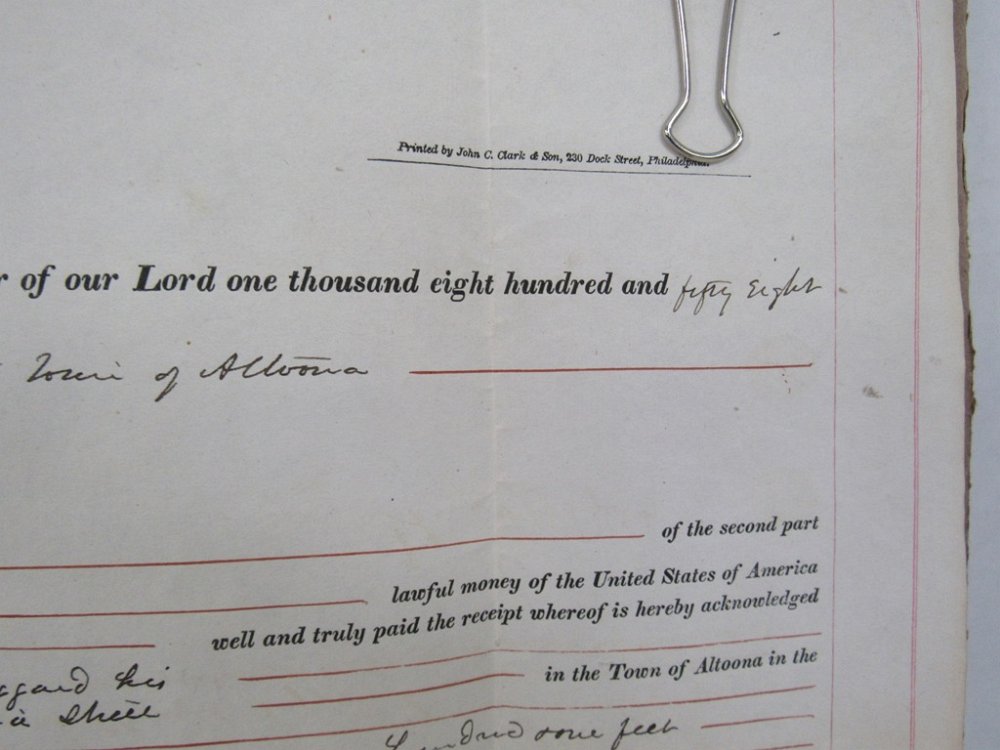 Printed by John C. Clark & Son, 230 Dock Street, Philadelphia.
of our Lord one thousand eight hundred and fifty eight
Town of Altoona
of the second part
lawful money of the United States of America
well and truly paid the receipt whereof is hereby acknowledged
in the Town of Altoona in the
his
hundred one feet